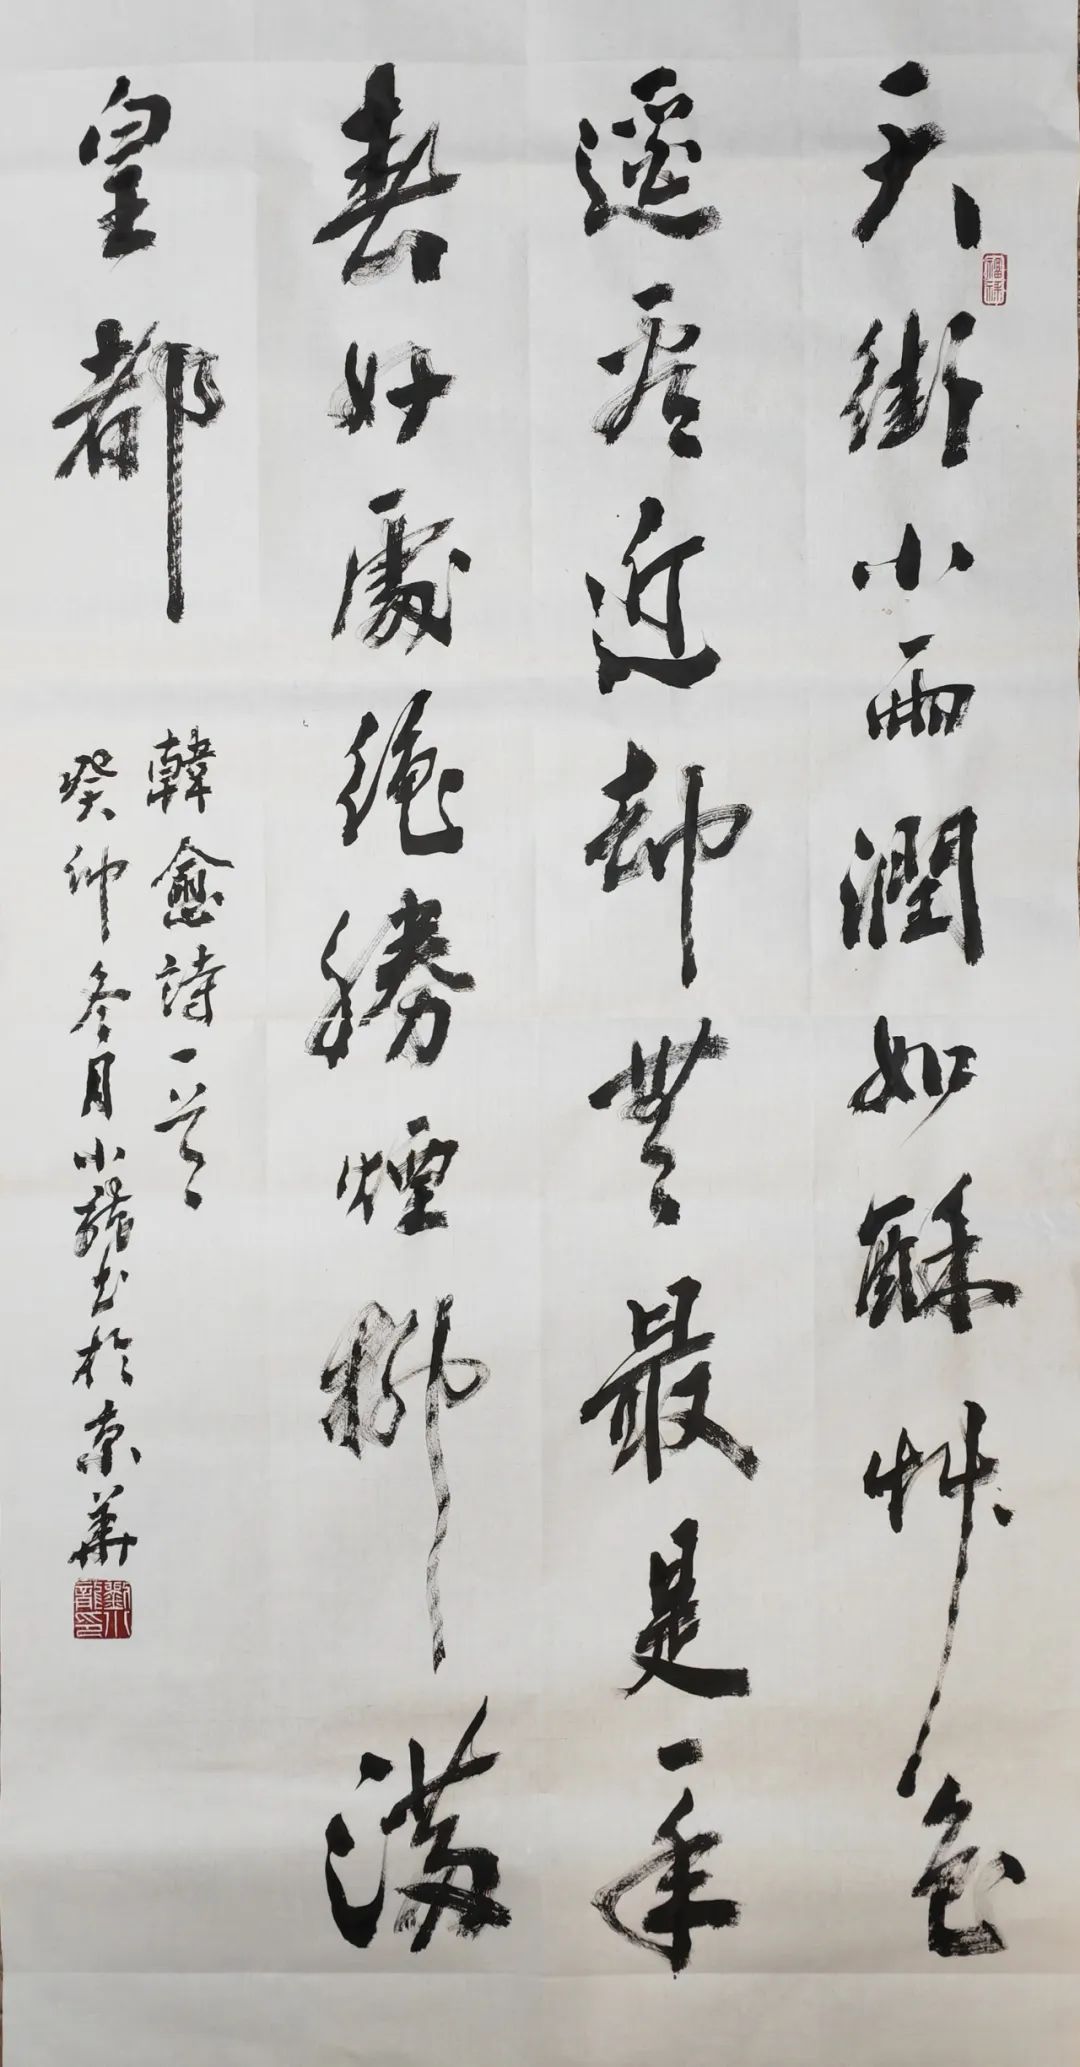 天街小雨潤如酥艸色
遥看近却無最是一年
春好處絶勝煙柳滿
皇都
韓愈詩一首
癸卯冬月小龍书於京華
福祿
劉小龍印